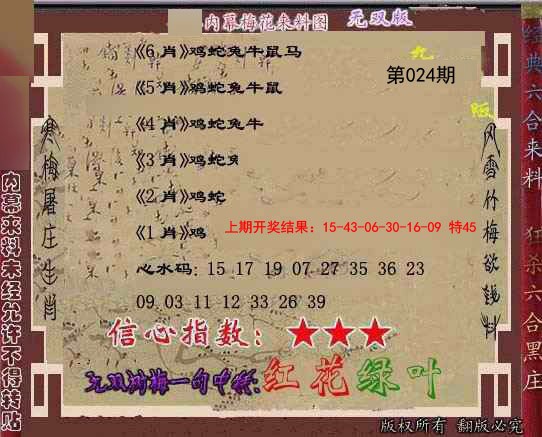 内幕梅花来料图 无双版
《6 肖》鸡蛇兔牛鼠马
九
第024期
《5 肖》鸡蛇兔牛鼠
版
《4 肖》鸡蛇兔牛
《3 肖》鸡蛇兔
《2 肖》鸡蛇
《1 肖》鸡
上期开奖结果：15-43-06-30-16-09 特45
心水码: 15 17 19 07 27 35 36 23
09 03 11 12 33 26 39
信心指数：★★★
无双湖梅一句中特:红花绿叶
版权所有 翻版必究
寒梅屠庄生肖
风雪竹梅欲钱料
内幕来料未经允许不得转贴
经典六合来料
狂杀六合黑庄